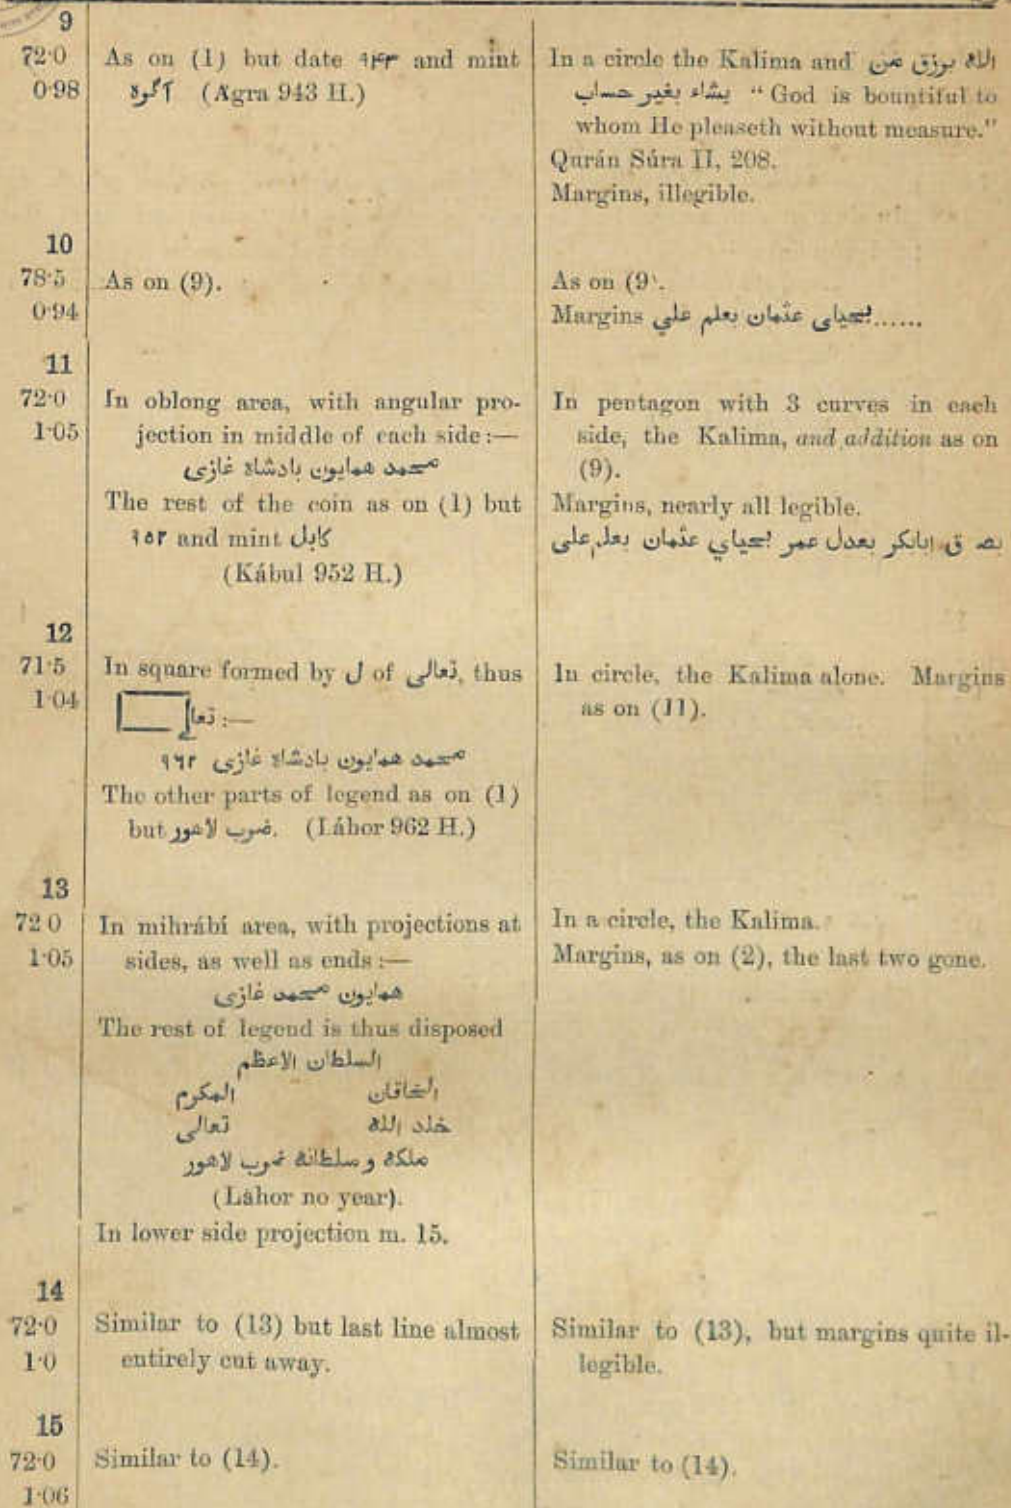 9
72·0
0·98
As on (1) but date ۹۴۳ and mint
آگره (Agra 943 H.)
In a circle the Kalima and الله یرزق من
یشاء بغیر حساب “God is bountiful to
whom He pleaseth without measure.”
Qurán Súra II, 208.
Margins, illegible.
10
78·5
0·94
As on (9).
As on (9).
Margins بحیای عثمان بعلم علي......
11
72·0
1·05
In oblong area, with angular pro-
jection in middle of each side:—
محمد همایون بادشاه غازی
The rest of the coin as on (1) but
۹۵۲ and mint کابل
(Kábul 952 H.)
In pentagon with 3 curves in each
side, the Kalima, and addition as on
(9).
Margins, nearly all legible.
بصدق ابابکر بعدل عمر بحیاي عثمان بعلم علی
12
71·5
1·04
In square formed by ل of تعالی, thus
تعا :—
محمد همایون بادشاه غازی ۹۶۲
The other parts of legend as on (1)
but ضرب لاهور. (Láhor 962 H.)
In circle, the Kalima alone. Margins
as on (11).
13
72 0
1·05
In mihrábí area, with projections at
sides, as well as ends:—
همایون محمد غازی
The rest of legend is thus disposed
السلطان الاعظم
الخاقان المکرم
خلد الله تعالی
ملکه و سلطانه ضرب لاهور
(Láhor no year).
In lower side projection m. 15.
In a circle, the Kalima.
Margins, as on (2), the last two gone.
14
72·0
1·0
Similar to (13) but last line almost
entirely cut away.
Similar to (13), but margins quite il-
legible.
15
72·0
1·06
Similar to (14).
Similar to (14).